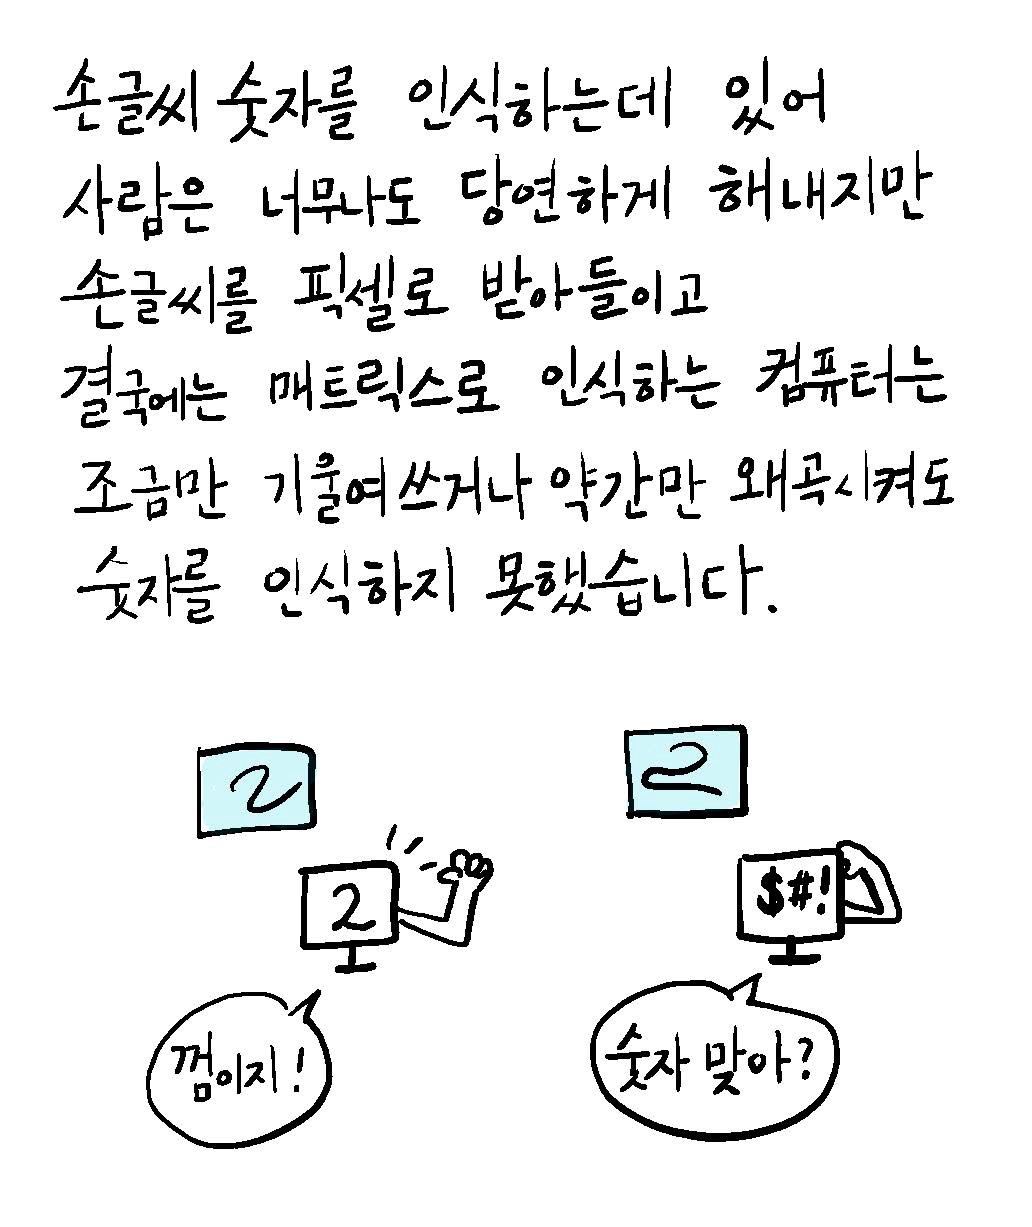 손글씨 숫자를 인식하는데 있어
사람은 너무나도 당연하게 해내지만
손글씨를 픽셀로 받아들이고
결국에는 매트릭스로 인식하는 컴퓨터는
조금만 기울여쓰거나 약간만 왜곡시켜도
숫자를 인식하지 못했습니다.
2
2
2
$#!
껌이지!
숫자 맞아?